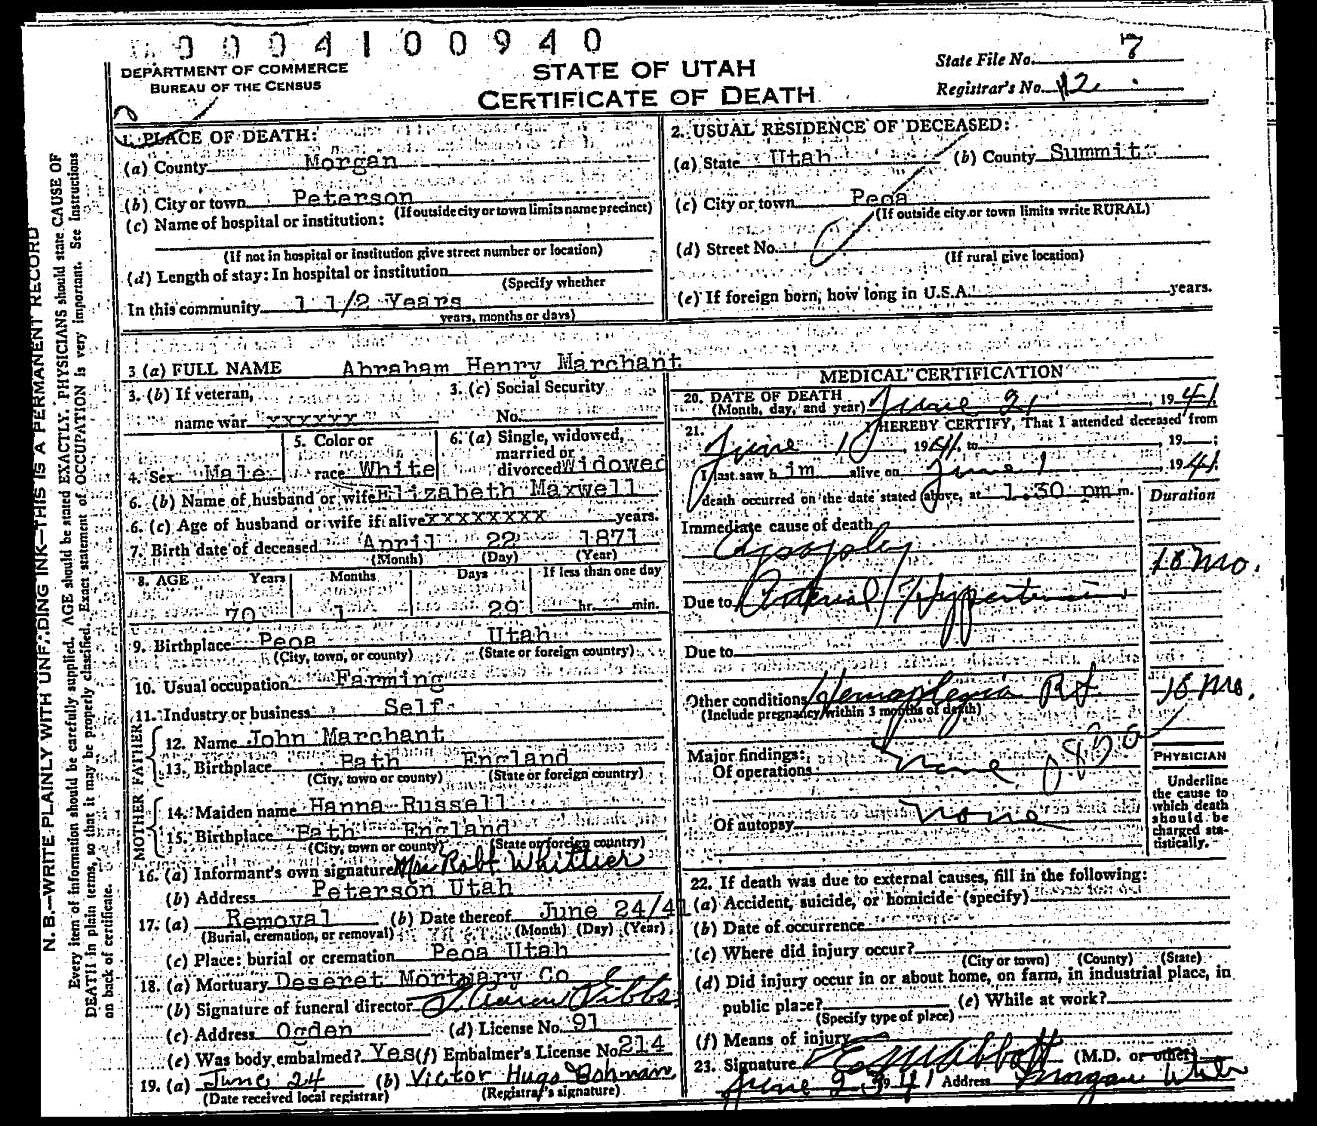 0004100940
DEPARTMENT OF COMMERCE
BUREAU OF THE CENSUS
STATE OF UTAH
CERTIFICATE OF DEATH
State File No. 7
Registrar's No. 12
N. B.—WRITE PLAINLY WITH UNFADING INK—THIS IS A PERMANENT RECORD
Every item of information should be carefully supplied. AGE should be stated EXACTLY. PHYSICIANS should state CAUSE OF
DEATH in plain terms, so that it may be properly classified. Exact statement of OCCUPATION is very important. See Instructions
on back of certificate.
1. PLACE OF DEATH:
(a) County Morgan
(b) City or town Peterson
(If outside city or town limits name precinct)
(c) Name of hospital or institution:
(If not in hospital or institution give street number or location)
(d) Length of stay: In hospital or institution
(Specify whether
In this community 1 1/2 Years
years, months or days)
2. USUAL RESIDENCE OF DECEASED:
(a) State Utah (b) County Summit
(c) City or town Peoa
(If outside city or town limits write RURAL)
(d) Street No.
(If rural give location)
(e) If foreign born, how long in U.S.A. years.
3 (a) FULL NAME Abraham Henry Marchant
3. (b) If veteran,
name war xxxxxx
3. (c) Social Security
No.
4. Sex Male
5. Color or
race White
6. (a) Single, widowed,
married or
divorced Widowed
6. (b) Name of husband or wife Elizabeth Maxwell
6. (c) Age of husband or wife if alive xxxxxxxx years.
7. Birth date of deceased April 22 1871
(Month) (Day) (Year)
8. AGE Years Months Days If less than one day
70 1 29 hr. min.
9. Birthplace Peoa Utah
(City, town, or county) (State or foreign country)
10. Usual occupation Farming
11. Industry or business Self
FATHER
12. Name John Marchant
13. Birthplace Bath England
(City, town or county) (State or foreign country)
MOTHER
14. Maiden name Hanna Russell
15. Birthplace Bath England
(City, town or county) (State or foreign country)
16. (a) Informant's own signature Mrs Robt Whittier
(b) Address Peterson Utah
17. (a) Removal (b) Date thereof June 24/41
(Burial, cremation, or removal) (Month) (Day) (Year)
(c) Place: burial or cremation Peoa Utah
18. (a) Mortuary Deseret Mortuary Co
(b) Signature of funeral director
(c) Address Ogden (d) License No. 91
(e) Was body embalmed? Yes (f) Embalmer's License No. 214
19. (a) June 24 (b) Victor Hugo Bohman
(Date received local registrar) (Registrar's signature)
MEDICAL CERTIFICATION
20. DATE OF DEATH
(Month, day, and year) June 21, 1941
21. I HEREBY CERTIFY, That I attended deceased from
June 1, 1941, to , 19 ;
I last saw him alive on June 1, 1941.
death occurred on the date stated above, at 1.30 pm m.
Duration
Immediate cause of death
Apoplexy
18 mo.
Due to Arterial Hypertension
Due to
Other conditions Hemoplegia Rt 18 mo.
(Include pregnancy within 3 months of death)
Major findings:
Of operations None
Of autopsy None
PHYSICIAN
Underline
the cause to
which death
should be
charged sta-
tistically.
22. If death was due to external causes, fill in the following:
(a) Accident, suicide, or homicide (specify)
(b) Date of occurrence
(c) Where did injury occur?
(City or town) (County) (State)
(d) Did injury occur in or about home, on farm, in industrial place, in
public place? (e) While at work?
(Specify type of place)
(f) Means of injury
23. Signature Abbott (M.D. or other)
June 23, 1941 Address Morgan Utah